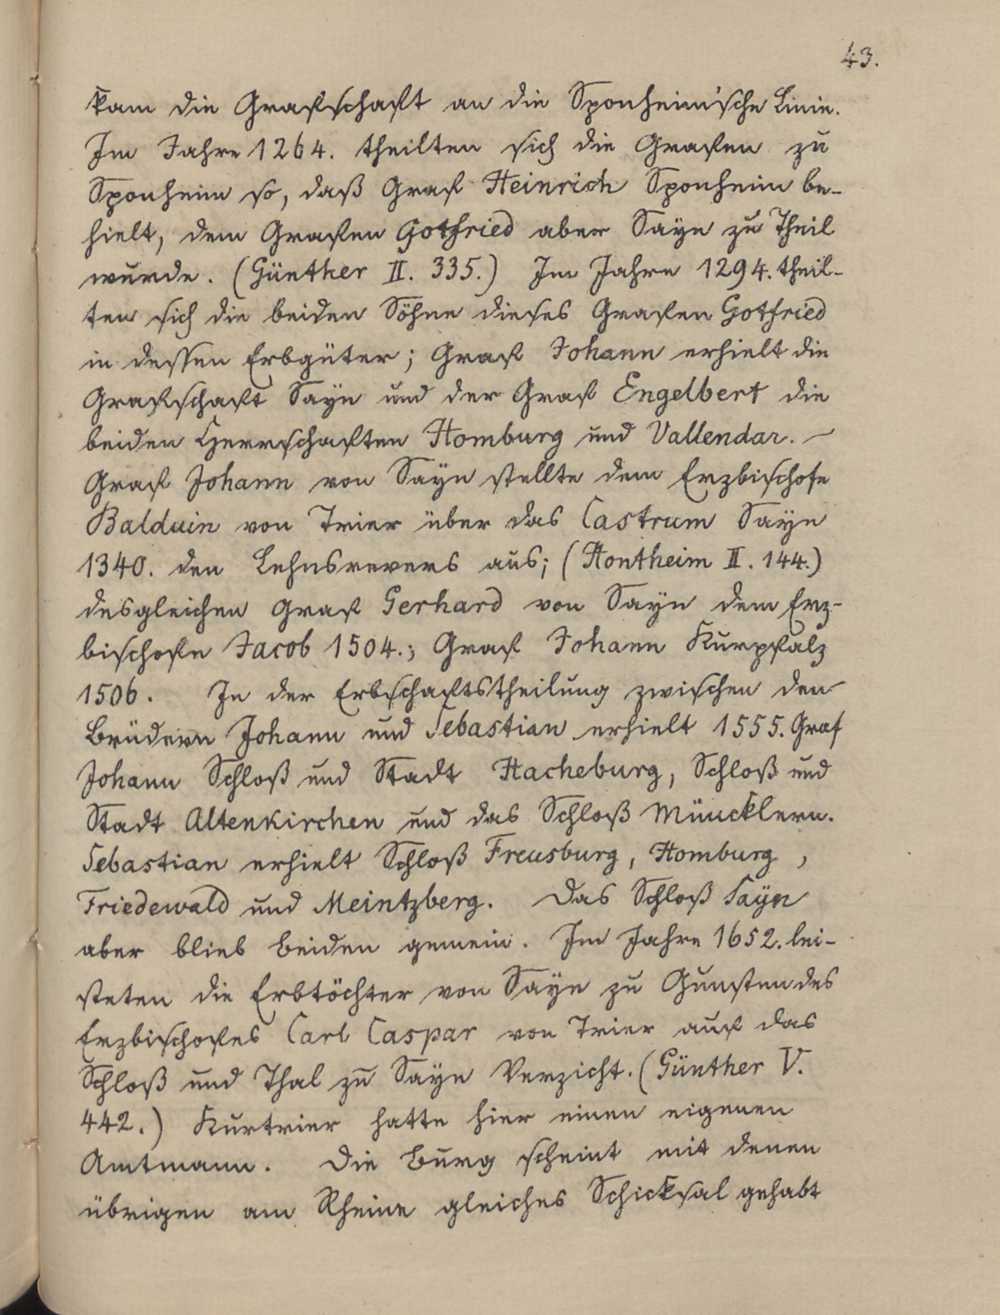 43.
kam die Grafschaft an die Sponheim'sche Linie.
Im Jahre 1264. theilten sich die Grafen zu
Sponheim so, daß Graf Heinrich Sponheim be-
hielt, dem Grafen Gotfried aber Sayn zu Theil
wurde. (Günther II. 335.) Im Jahre 1294. theil-
ten sich die beiden Söhne dieses Grafen Gotfried
in dessen Erbgüter; Graf Johann erhielt die
Grafschaft Sayn und der Graf Engelbert die
beiden Herrschaften Homburg und Vallendar. –
Graf Johann von Sayn stellte dem Erzbischofe
Balduin von Trier über das Castrum Sayn
1340. den Lehnsrevers aus; (Hontheim II. 144.)
desgleichen Graf Gerhard von Sayn dem Erz-
bischofen Jacob 1504.; Graf Johann Kurpfalz
1506. In der Erbschaftstheilung zwischen den
Brüdern Johann und Sebastian erhielt 1555. Graf
Johann Schloß und Stadt Hacheburg, Schloß und
Stadt Altenkirchen und das Schloß Müncklern.
Sebastian erhielt Schloß Freusburg, Homburg,
Friedewald und Meintzberg. Das Schloß Sayn
aber blieb beiden gemein. Im Jahre 1652. lei-
steten die Erbtöchter von Sayn zu Gunsten des
Erzbischofes Carl Caspar von Trier auf das
Schloß und Thal zu Sayn Verzicht. (Günther V.
442.) Kurtrier hatte hier einen eigenen
Amtmann. Die Burg scheint mit denen
übrigen am Rheine gleiches Schicksal gehabt